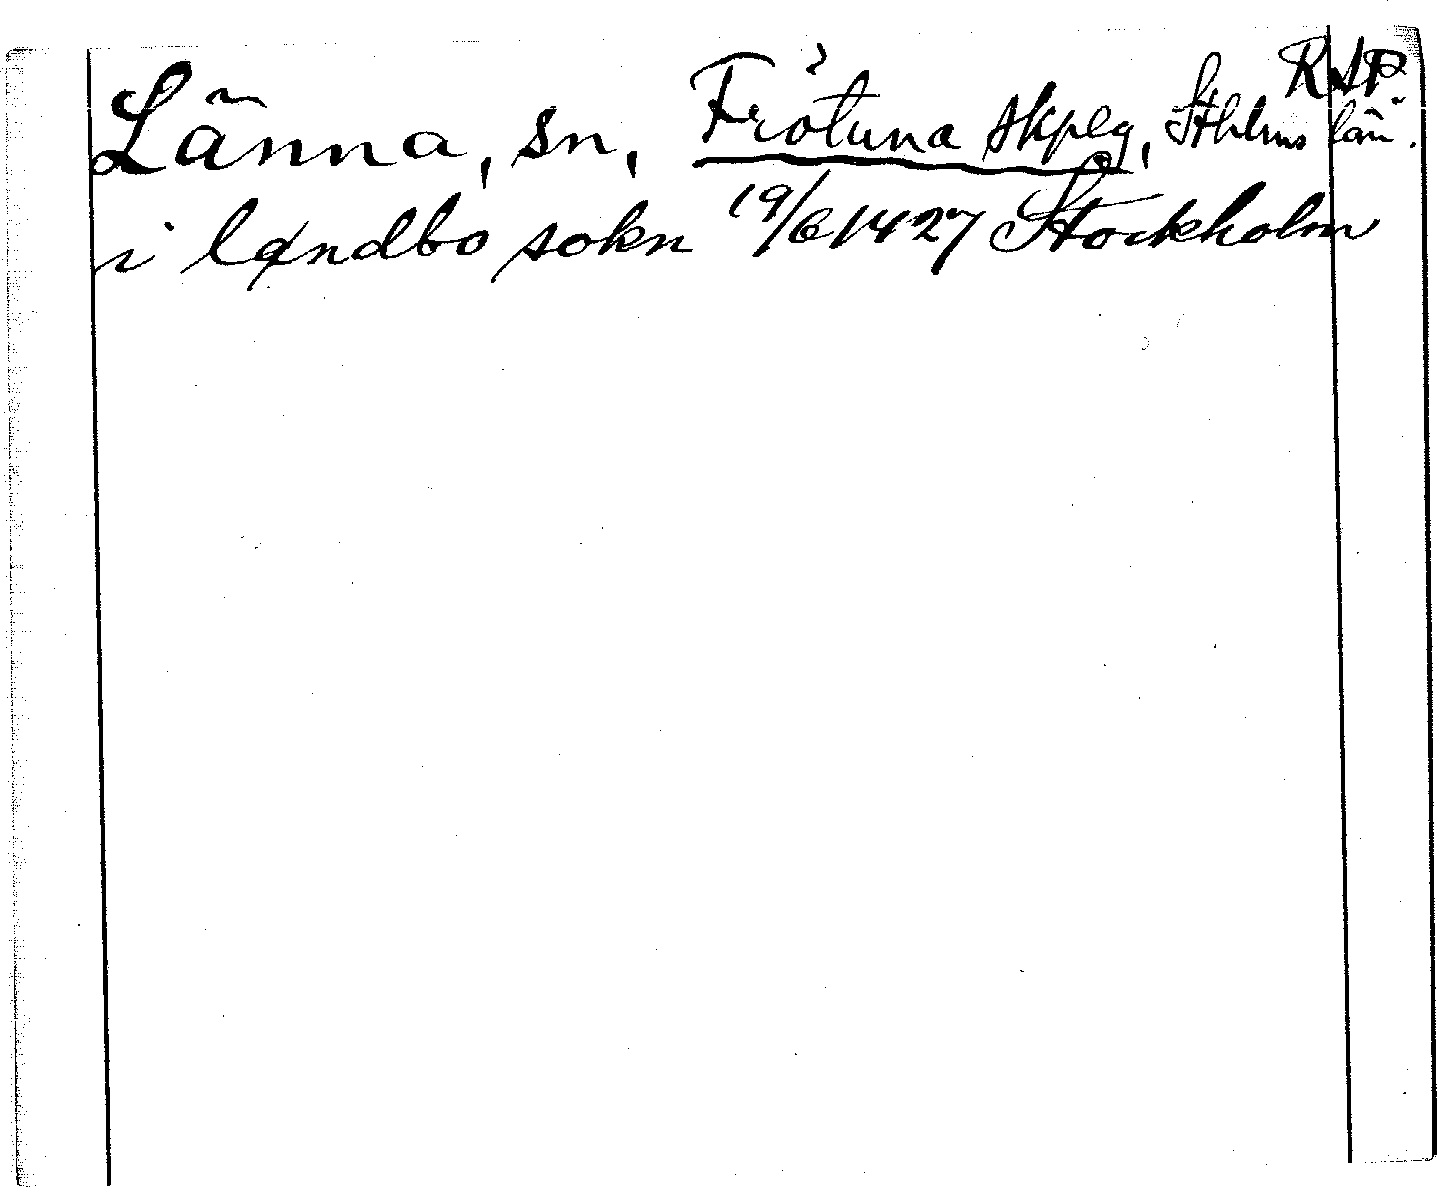 RAP
Länna, sn, Frötuna skpelag, Sthlms län.
i lændbo sokn 19/6 1427 Stockholm